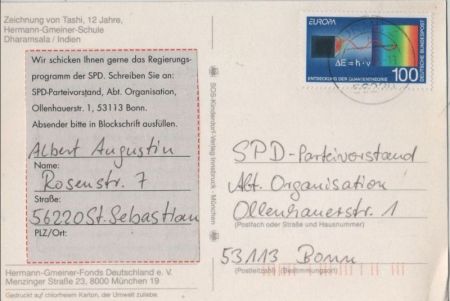 Zeichnung von Tashi, 12 Jahre,
Hermann-Gmeiner-Schule
Dharamsala / Indien
Wir schicken Ihnen gerne das Regierungs-
programm der SPD. Schreiben Sie an:
SPD-Parteivorstand, Abt. Organisation,
Ollenhauerstr. 1, 53113 Bonn.
Absender bitte in Blockschrift ausfüllen.
Albert Augustin
Name:
Rosenstr. 7
Straße:
56220 St. Sebastian
PLZ/Ort:
Hermann-Gmeiner-Fonds Deutschland e. V.
Menzinger Straße 23, 8000 München 19
Gedruckt auf chlorfreiem Karton, der Umwelt zuliebe.
SOS-Kinderdorf-Verlag Innsbruck - München
EUROPA
ΔE = h · ν
ENTDECKUNG DER QUANTENTHEORIE
100
DEUTSCHE BUNDESPOST
SPD-Parteivorstand
Abt. Organisation
Ollenhauerstr. 1
(Postfach oder Straße und Hausnummer)
53113 Bonn
(Postleitzahl) (Bestimmungsort)